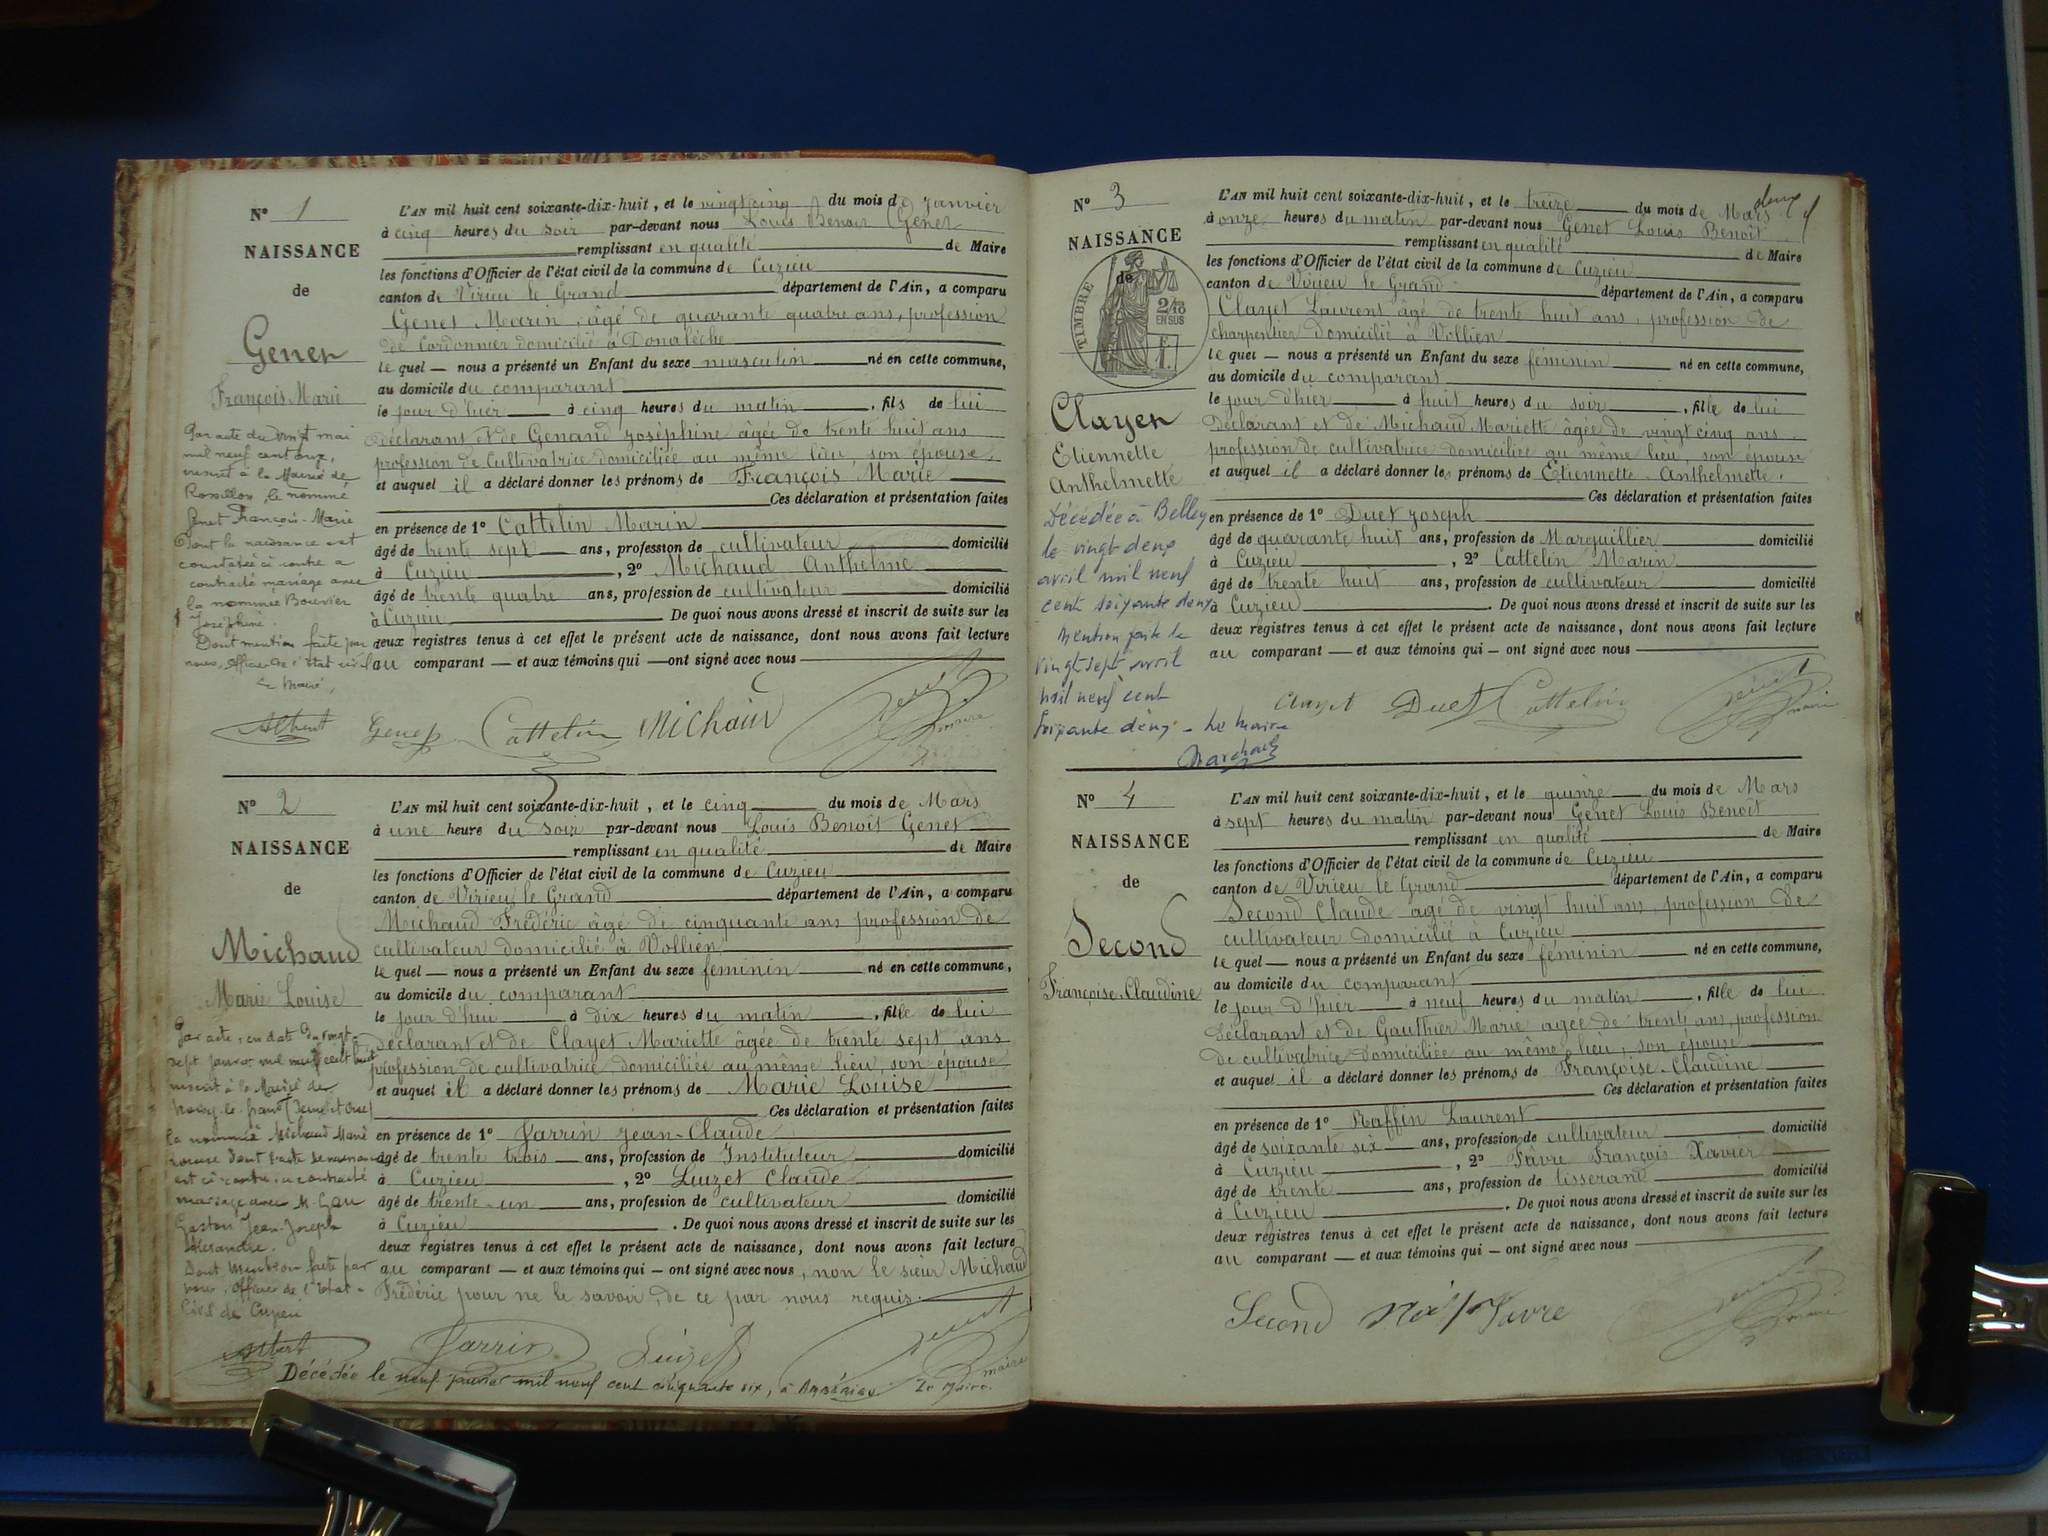 N° 1
NAISSANCE
de
Genet
François Marie
Par acte du vingt mai
mil neuf cent onze,
inscrit à la Mairie de
Rossillon, le nommé
Genet François-Marie
Dont la naissance est
constatée ci contre a
contracté mariage avec
la nommée Bouvier
Joséphine.
Dont mention faite par
nous, officier de l'état civil
Le Maire,
L'AN mil huit cent soixante-dix-huit, et le vingt cinq du mois de Janvier
à cinq heures du soir par-devant nous Louis Benoit Genet
remplissant en qualité de Maire
les fonctions d'Officier de l'état civil de la commune de Cuzieu
canton de Virieu le Grand département de l'Ain, a comparu
Genet Marin, âgé de quarante quatre ans, profession
de Cordonnier domicilié à Donalèche
le quel — nous a présenté un Enfant du sexe masculin né en cette commune,
au domicile du comparant
le jour d'hier à cinq heures du matin, fils de lui
déclarant et de Genand Joséphine âgée de trente huit ans
profession de Cultivatrice domiciliée au même lieu, son épouse
et auquel il a déclaré donner les prénoms de François Marie
Ces déclaration et présentation faites
en présence de 1° Cattelin Marin
âgé de trente sept ans, profession de cultivateur domicilié
à Cuzieu, 2° Michaud Anthelme
âgé de trente quatre ans, profession de cultivateur domicilié
à Cuzieu. De quoi nous avons dressé et inscrit de suite sur les
deux registres tenus à cet effet le présent acte de naissance, dont nous avons fait lecture
au comparant — et aux témoins qui — ont signé avec nous
Albert Genet Cattelin Michaud Genet maire
N° 2
NAISSANCE
de
Michaud
Marie Louise
Par acte, en date du vingt-
sept janvier mil neuf cent huit
inscrit à la Mairie de
Noisy-le-Grand (Seine et Oise)
la nommée Michaud Marie
Louise dont l'acte de naissance
est ci-contre, a contracté
mariage avec M.
Gaston Jean-Joseph
Alexandre.
Dont mention faite par
nous, Officier de l'Etat-
Civil de Cuzieu
L'AN mil huit cent soixante-dix-huit, et le cinq du mois de Mars
à une heure du soir par-devant nous Louis Benoît Genet
remplissant en qualité de Maire
les fonctions d'Officier de l'état civil de la commune de Cuzieu
canton de Virieu le Grand département de l'Ain, a comparu
Michaud Frédéric âgé de cinquante ans profession de
cultivateur domicilié à Vollien
le quel — nous a présenté un Enfant du sexe féminin né en cette commune,
au domicile du comparant
le jour d'hui à dix heures du matin, fille de lui
déclarant et de Clayet Mariette âgée de trente sept ans
profession de cultivatrice domiciliée au même lieu, son épouse
et auquel il a déclaré donner les prénoms de Marie Louise
Ces déclaration et présentation faites
en présence de 1° Varrin Jean-Claude
âgé de trente trois ans, profession de Instituteur domicilié
à Cuzieu, 2° Luizet Claude
âgé de trente-un ans, profession de cultivateur domicilié
à Cuzieu. De quoi nous avons dressé et inscrit de suite sur les
deux registres tenus à cet effet le présent acte de naissance, dont nous avons fait lecture
au comparant — et aux témoins qui — ont signé avec nous, non le sieur Michaud
Frédéric pour ne le savoir, de ce par nous requis.
Albert Varrin Luizet Genet maire
Décédée le neuf janvier mil neuf cent cinquante six, à Le Maire.
N° 3
NAISSANCE
de
TIMBRE
2/10
EN SUS
Clayet
Etiennette
Anthelmette
Décédée à Belley
le vingt deux
avril mil neuf
cent soixante deux
Mention faite le
vingt sept avril
mil neuf cent
soixante deux - Le Maire
L'AN mil huit cent soixante-dix-huit, et le treize du mois de Mars
à onze heures du matin par-devant nous Genet Louis Benoît
remplissant en qualité de Maire
les fonctions d'Officier de l'état civil de la commune de Cuzieu
canton de Virieu le Grand département de l'Ain, a comparu
Clayet Laurent âgé de trente huit ans, profession de
charpentier domicilié à Vollien
le quel — nous a présenté un Enfant du sexe féminin né en cette commune,
au domicile du comparant
le jour d'hier à huit heures du soir, fille de lui
Déclarant et de Michaud Mariette âgée de vingt cinq ans
profession de cultivatrice domiciliée au même lieu, son épouse
et auquel il a déclaré donner les prénoms de Etiennette Anthelmette.
Ces déclaration et présentation faites
en présence de 1° Duet Joseph
âgé de quarante huit ans, profession de Marguillier domicilié
à Cuzieu, 2° Cattelin Marin
âgé de trente huit ans, profession de cultivateur domicilié
à Cuzieu. De quoi nous avons dressé et inscrit de suite sur les
deux registres tenus à cet effet le présent acte de naissance, dont nous avons fait lecture
au comparant — et aux témoins qui — ont signé avec nous
Clayet Duet Cattelin Genet maire
N° 4
NAISSANCE
de
Second
Françoise Claudine
L'AN mil huit cent soixante-dix-huit, et le quinze du mois de Mars
à sept heures du matin par-devant nous Genet Louis Benoît
remplissant en qualité de Maire
les fonctions d'Officier de l'état civil de la commune de Cuzieu
canton de Virieu le Grand département de l'Ain, a comparu
Second Claude agé de vingt huit ans, profession de
cultivateur domicilié à Cuzieu
le quel — nous a présenté un Enfant du sexe féminin né en cette commune,
au domicile du comparant
le jour d'hier à neuf heures du matin, fille de lui
déclarant et de Gauthier Marie agée de trente ans, profession
de cultivatrice domiciliée au même lieu, son épouse
et auquel il a déclaré donner les prénoms de Françoise-Claudine
Ces déclaration et présentation faites
en présence de 1° Raffin Laurent
âgé de soixante six ans, profession de cultivateur domicilié
à Cuzieu, 2° Fâvre François Xavier
âgé de trente ans, profession de tisserand domicilié
à Cuzieu. De quoi nous avons dressé et inscrit de suite sur les
deux registres tenus à cet effet le présent acte de naissance, dont nous avons fait lecture
au comparant — et aux témoins qui — ont signé avec nous
Second Favre Genet maire